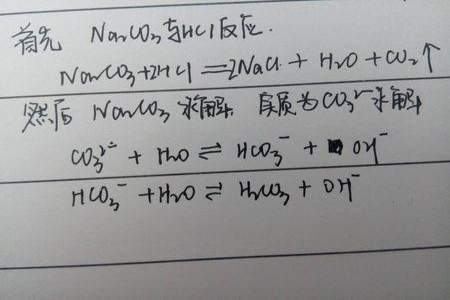 首先 Na₂CO₃与HCl反应.
Na₂CO₃+2HCl=2NaCl+H₂O+CO₂↑
然后 Na₂CO₃水解. 实质为CO₃²⁻水解
CO₃²⁻+H₂O⇌HCO₃⁻+OH⁻
HCO₃⁻+H₂O⇌H₂CO₃+OH⁻